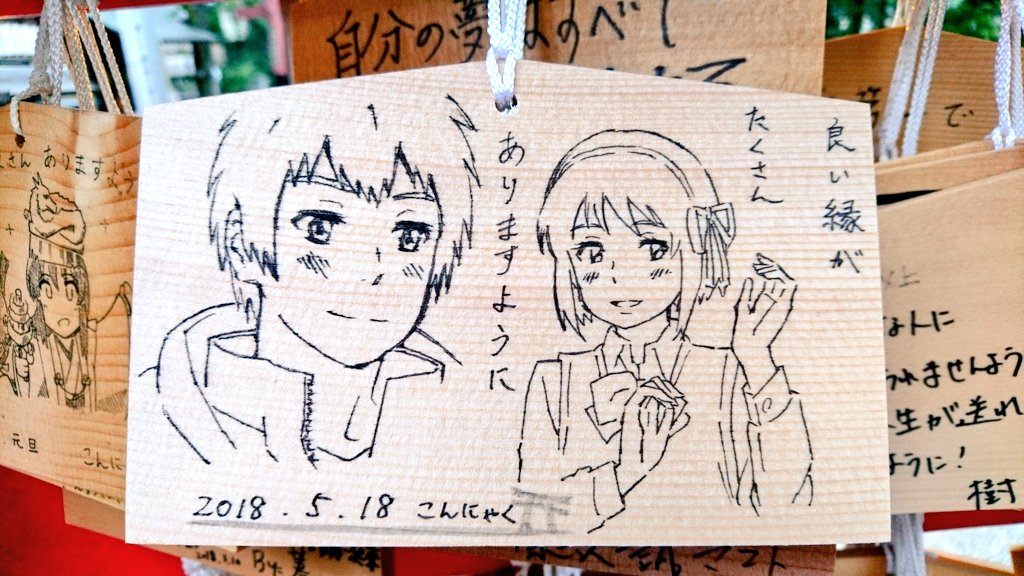 良い縁が
たくさん
ありますように
2018.5.18 こんにゃく
自分の夢はすべて
さん ありますよう
元旦
こんに
で
以上
なんに
われませんよう
生が送れ
ように!
樹
By.